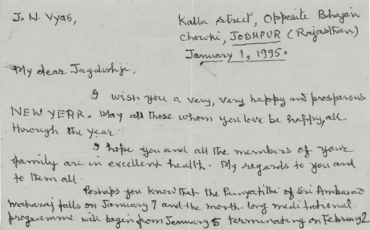 J. N. Vyas,
Kalla Street, Opposite Bhajan
Chowki, JODHPUR (Rajasthan)
January 1, 1995.
My dear Jagdishji,
I wish you a very, very happy and prosperous
NEW YEAR. May all those whom you love be happy, all
through the year.
I hope you and all the members of your
family are in excellent health. My regards to you and
to them all.
Perhaps you know that the Punyatithi of Sri
maharaj falls on January 7 and the month-long meditational
programme will begin from January 5 terminating on February 2